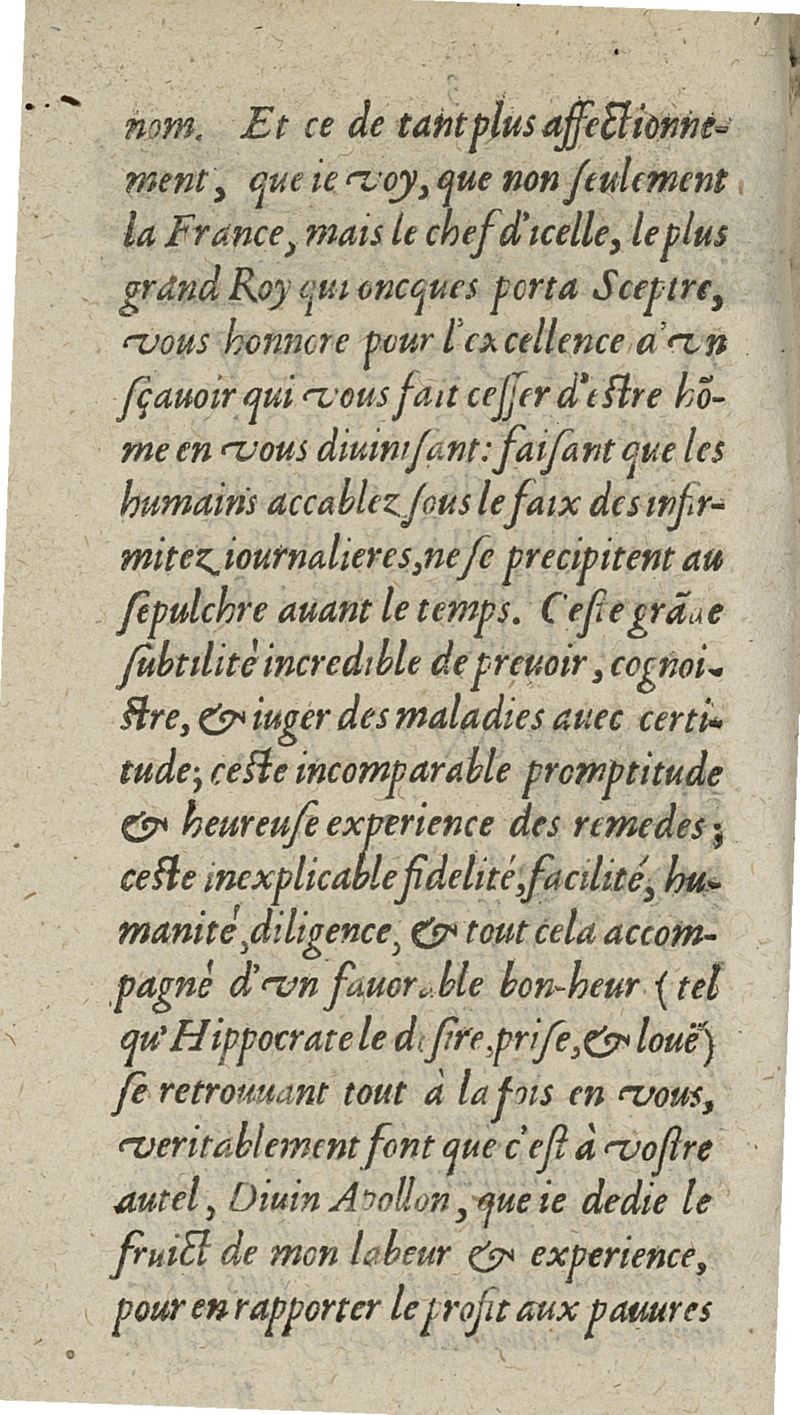 nom. Et ce de tant plus affectionne-
ment, que ie voy, que non ſeulement
la France, mais le chef d'icelle, le plus
grand Roy qui oncques porta Sceptre,
vous honnore pour l'excellence d'vn
ſçauoir qui vous fait ceſſer d'eſtre hõ-
me en vous diuiniſant: faiſant que les
humains accablez ſous le faix des infir-
mitez iournalieres, ne ſe precipitent au
ſepulchre auant le temps. Ceſte grãde
ſubtilitè incredible de preuoir, cognoi-
ſtre, & iuger des maladies auec certi-
tude; ceſte incomparable promptitude
& heureuſe experience des remedes;
ceſte inexplicable fidelité, facilité, hu-
manité, diligence, & tout cela accom-
pagnè d'vn fauorable bon-heur (tel
qu'Hippocrate le deſire, priſe, & louë)
ſe retrouuant tout à la fois en vous,
veritablement font que c'eſt à voſtre
autel, Diuin Apollon, que ie dedie le
fruict de mon labeur & experience,
pour en rapporter le profit aux pauures